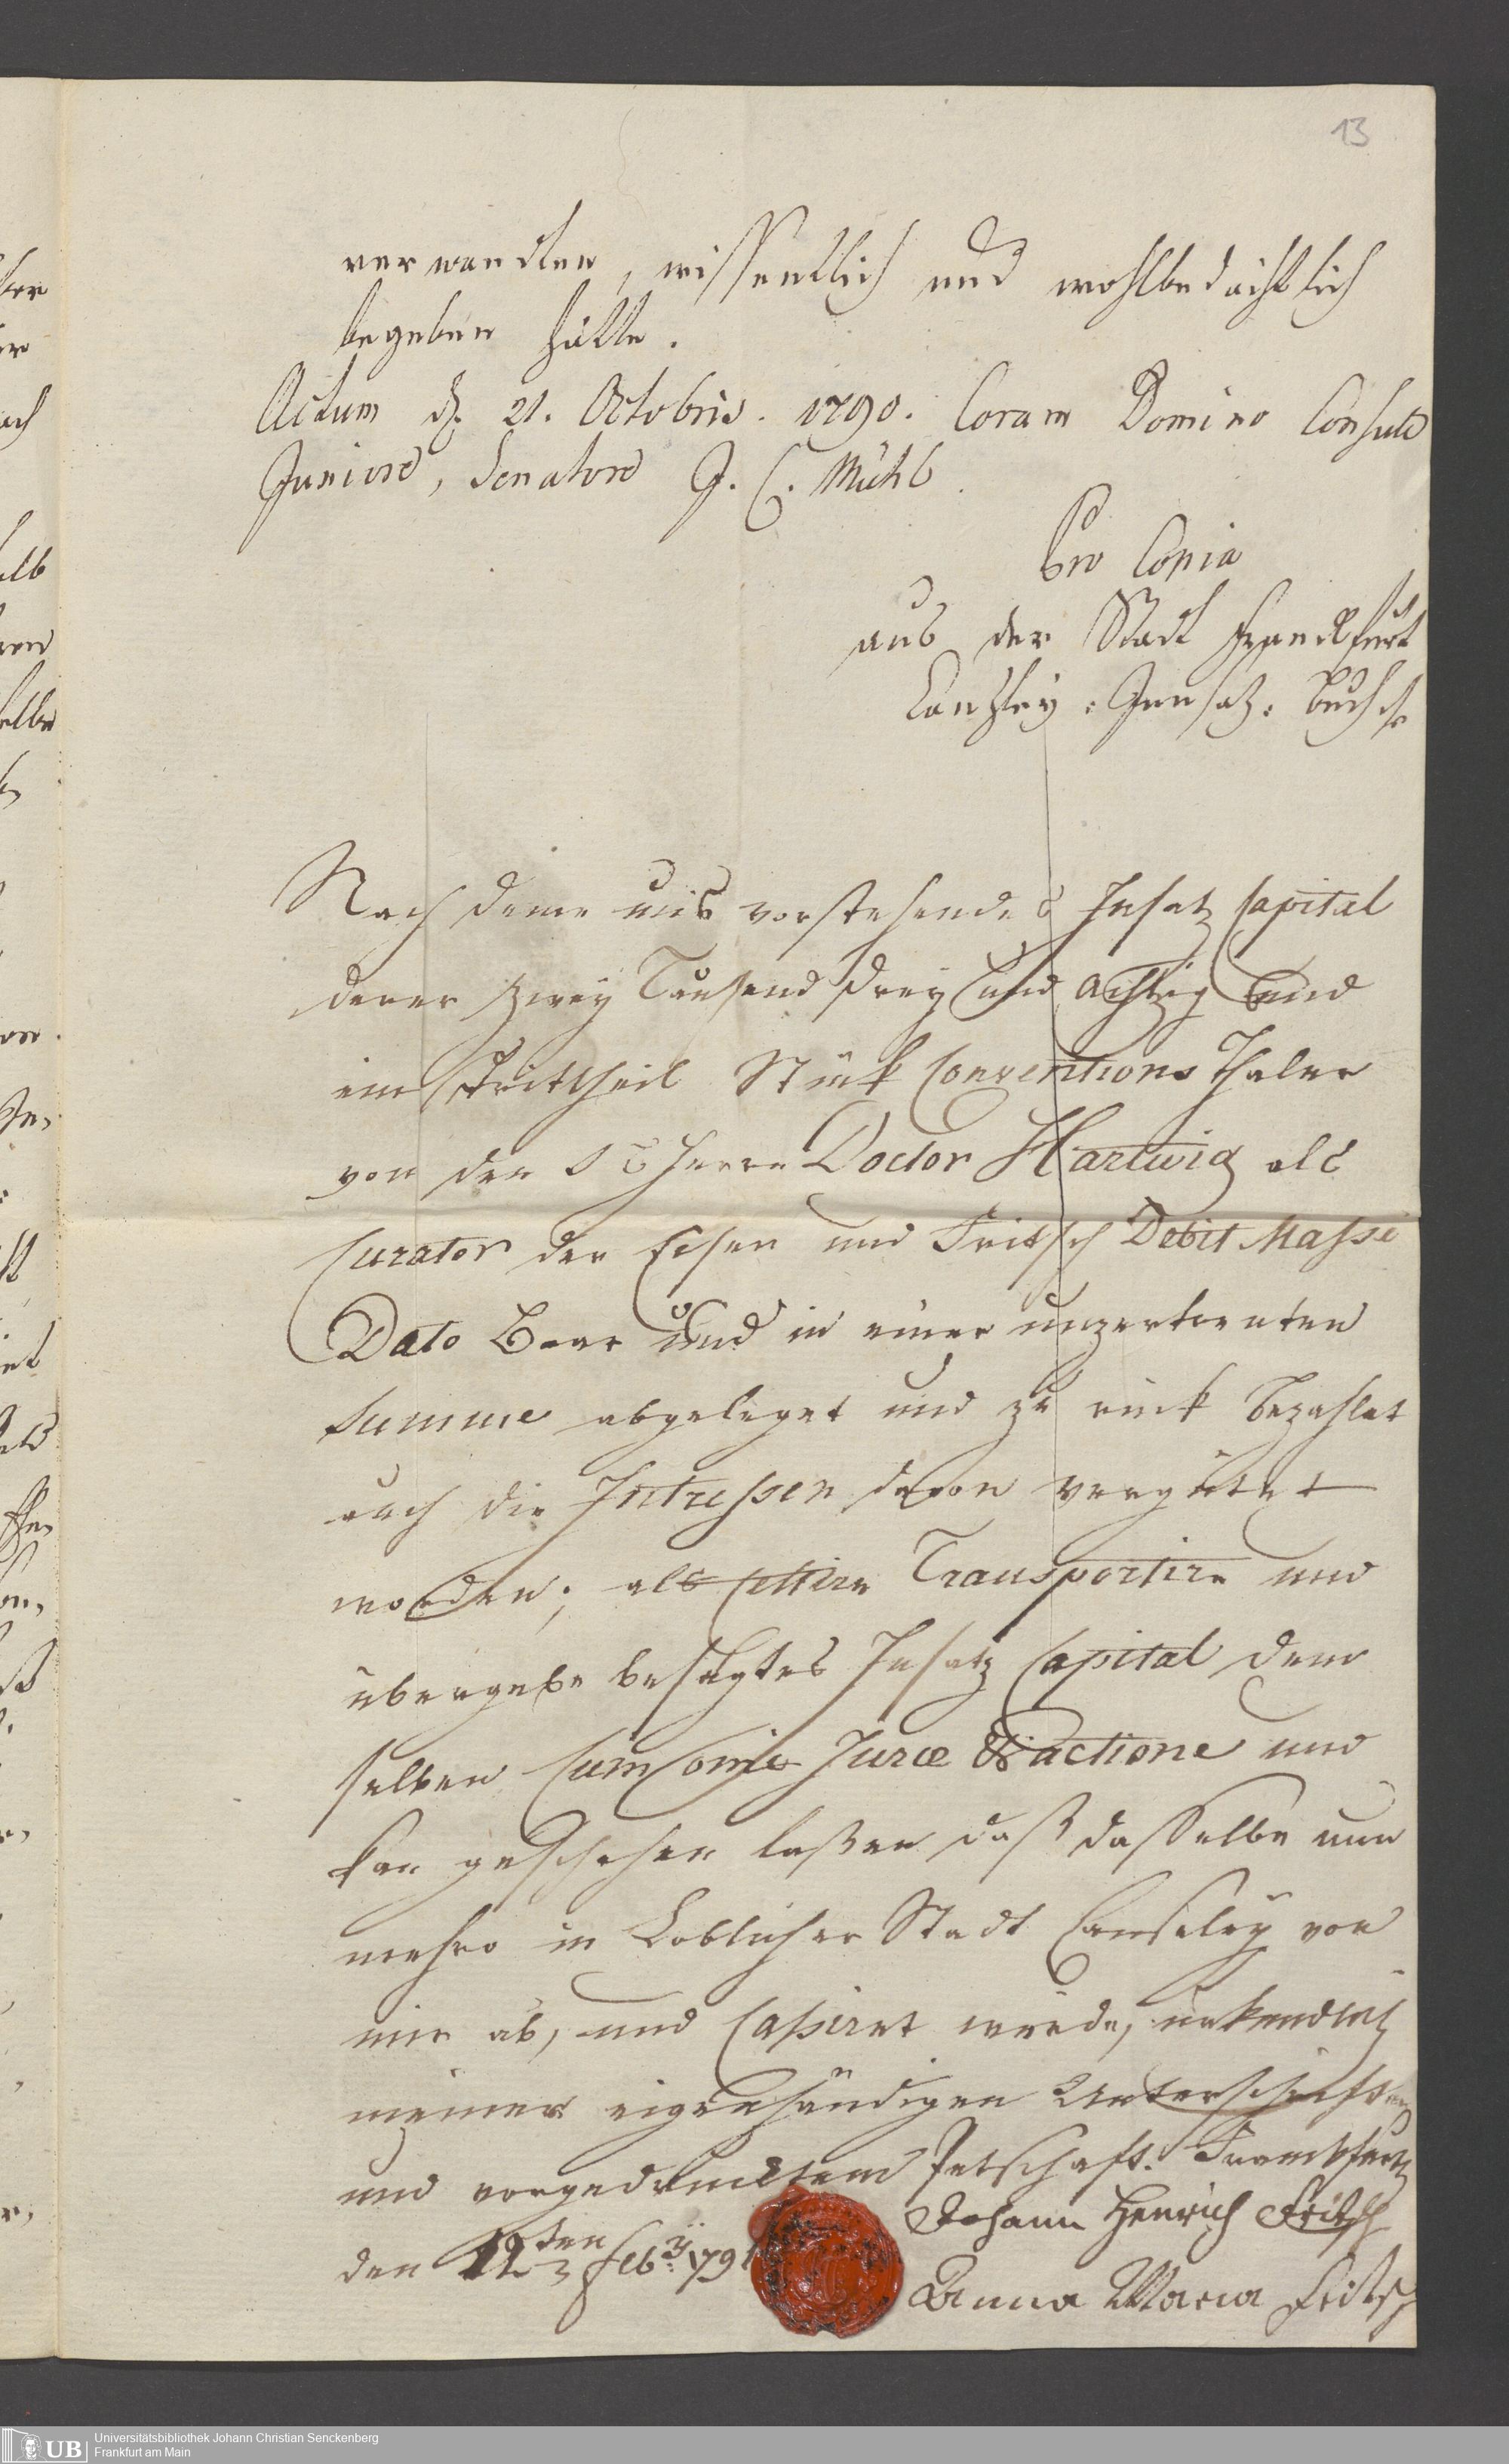 13
verwandten, wissentlich und wohlbedächtlich
begeben hätte.
Actum d. 21. Octobris. 1790. Coram Domino Consule
Juniore, Senatore J. C. Mühl.
Pro Copia
aus der Stadt Franckfurt
Canzley-Innsatz-Buch
Nach deme uns vorstehendes Insatz Capital
derer zwey Tausend drey und achtzig und
ein Drittheil Stück Conventions Thaler
von der Herrn Doctor Hartwig als
Curator der und Fritsch Debit Masse
Dato Baar und in einer unzertrenten
Summe abgeleget und zu rück bezahlet
auch die Intressen davon vergütet
worden; als Cettire Transportire und
übergebe besagtes Insatz Capital dem
selben Cum omie Juræ & actione und
kan geschehen laßen daß dasselbe nun
mehro in Loblicher Stadt Canseley von
mir ab, und Casiret werde, urkendlich
meiner eigenhändigen Unterschrifft
und vorgedrucktem Petschaft. Franckfurth
den 12ten Feb. 1791
Johann Henrich Fritsch
Anna Maria Fritsch
UB
Universitätsbibliothek Johann Christian Senckenberg
Frankfurt am Main